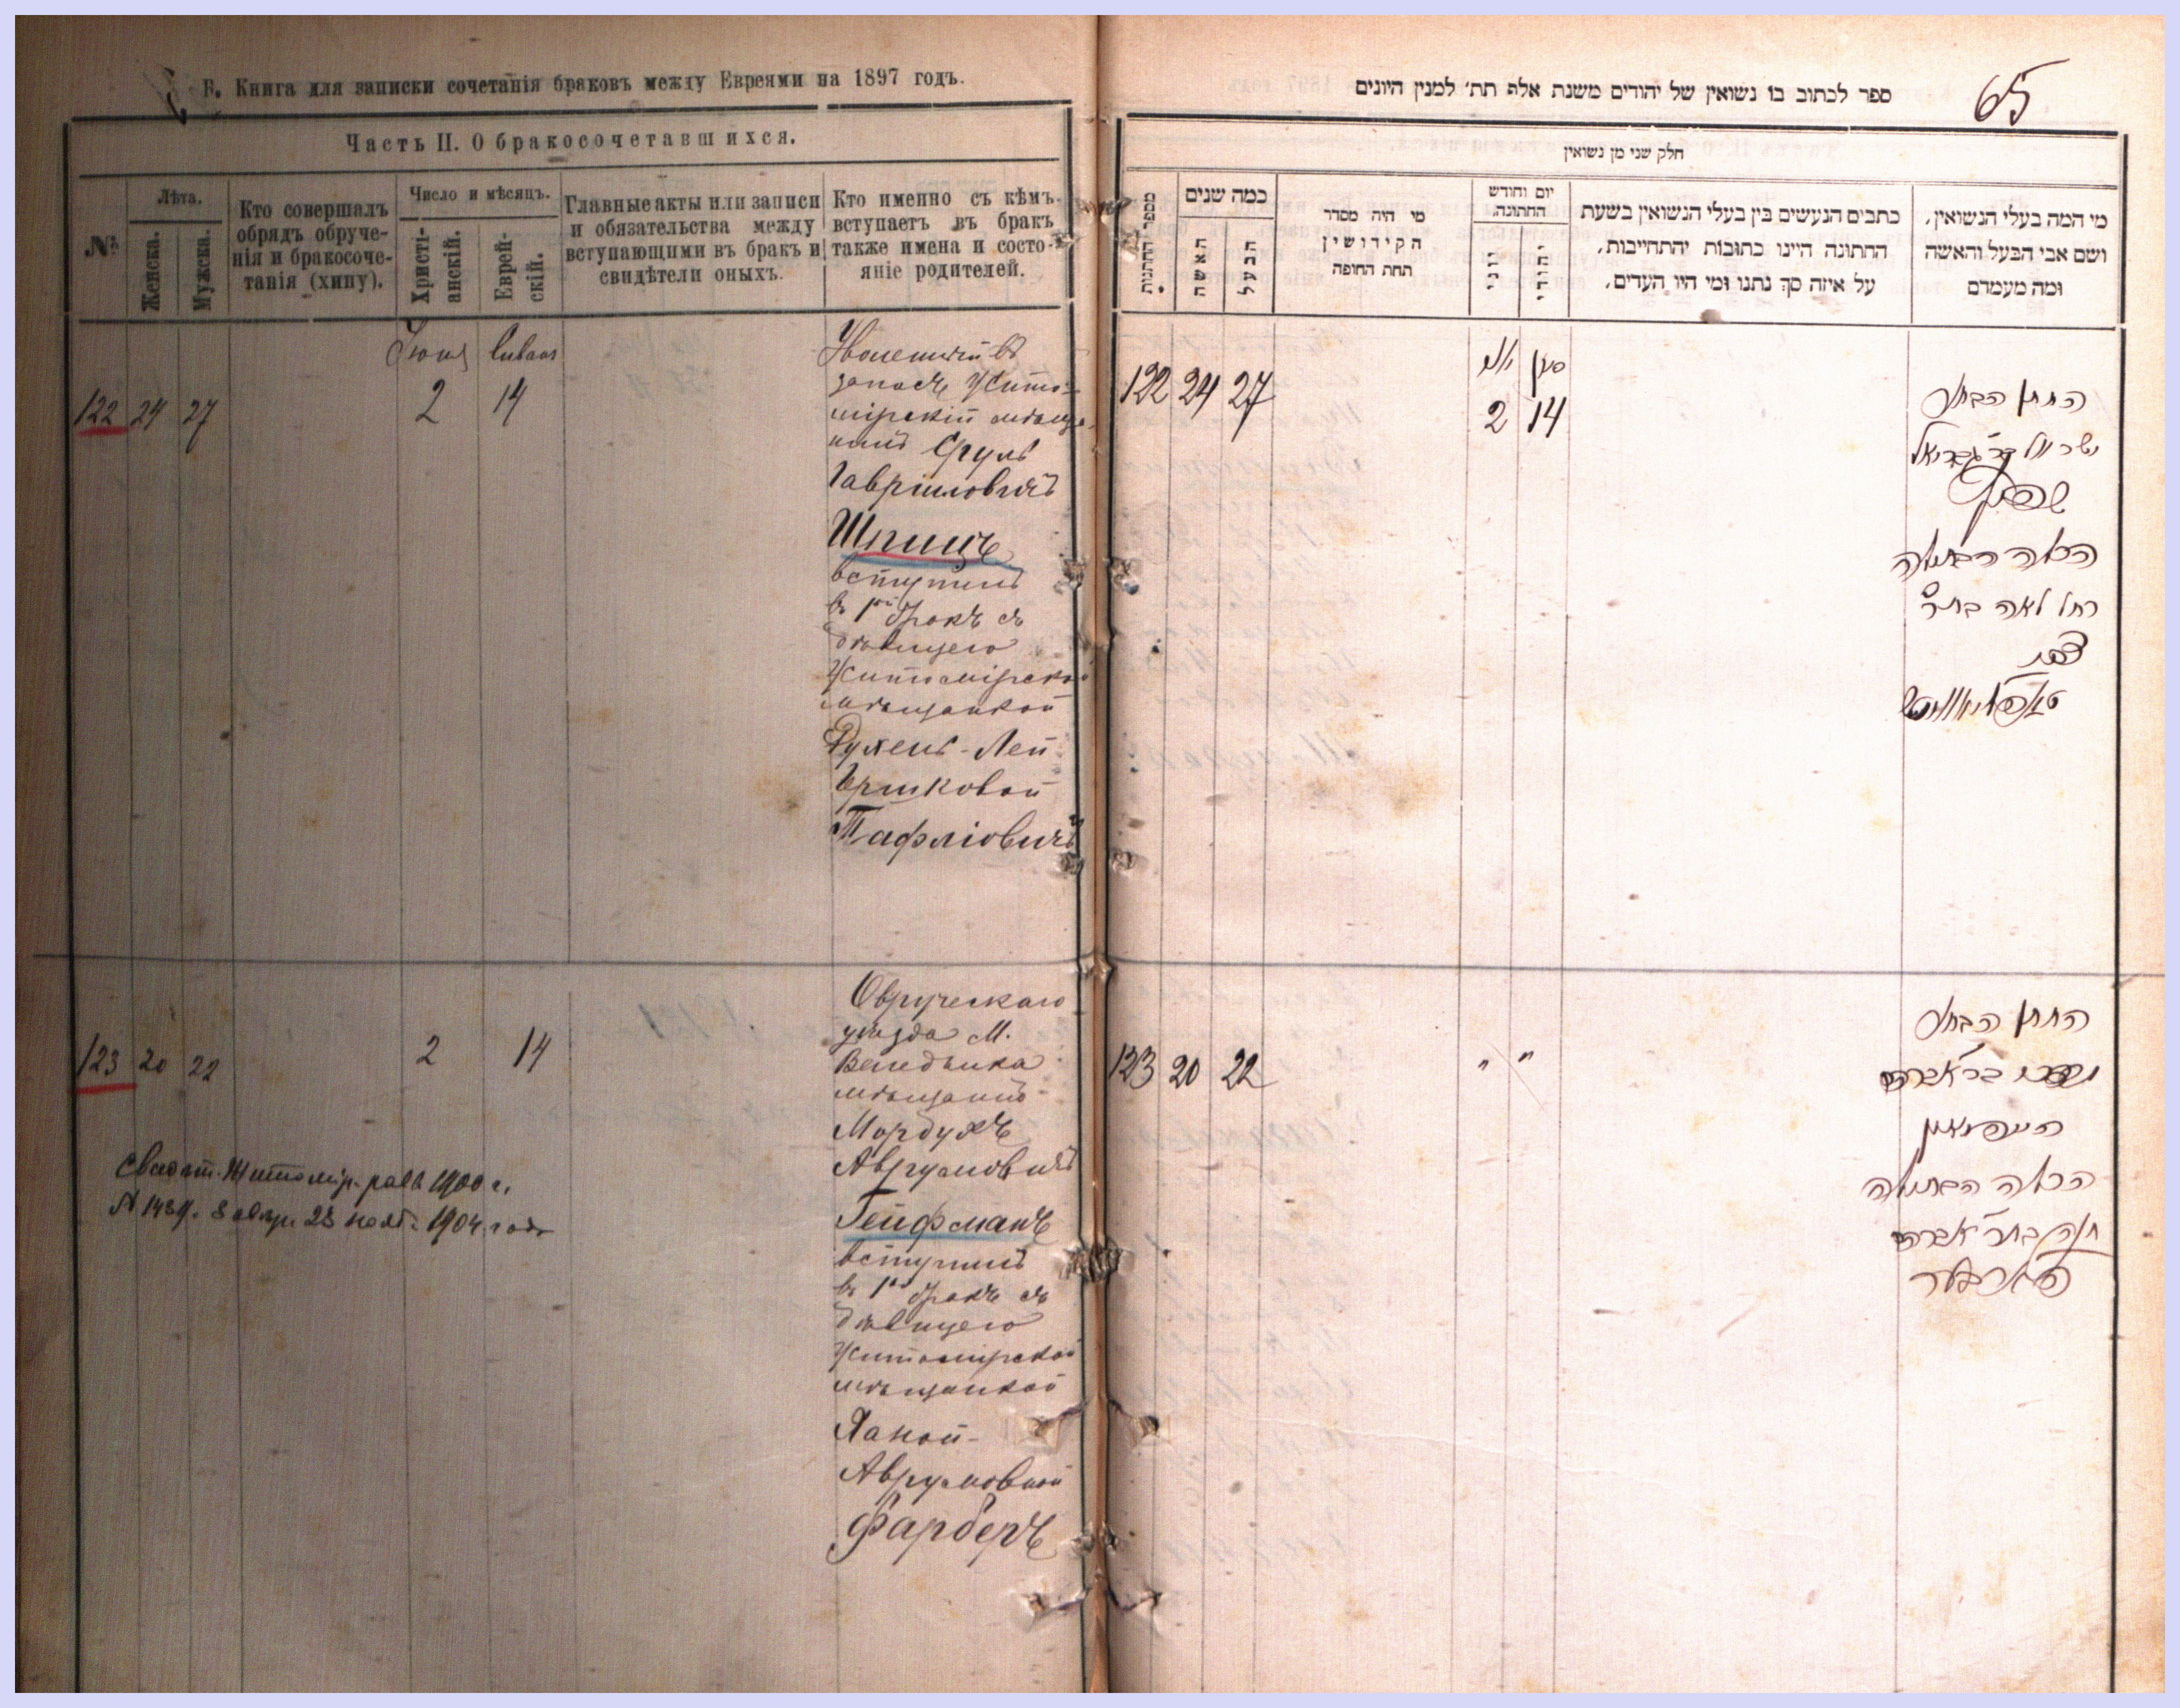 Б. Книга для записки сочетанія браковъ между Евреями на 1897 годъ.
Часть II. О бракосочетавшихся.
№
Лѣта.
Женска.
Мужска.
Кто совершалъ
обрядъ обруче-
нія и бракосоче-
танія (хипу).
Число и мѣсяцъ.
Христі-
анскій.
Еврей-
скій.
Главные акты или записи
и обязательства между
вступающими въ бракъ и
свидѣтели оныхъ.
Кто именно съ кѣмъ
вступаетъ въ бракъ
также имена и состо-
яніе родителей.
Іюня
122 24 27 2 14
запасѣ Жито-
мірскій мѣща-
нинъ Сруль
Гавріиловичъ
Шпицъ
вступилъ
въ 1й бракъ съ
дѣвицею
Житомірской
мѣщанкой
Рухель-Леей
Гершковой
Тафліовичъ
123 20 22 2 14
Овручскаго
уѣзда М.
Веледника
мѣщанинъ
Мордухъ
Аврумовичъ
Гейфманъ
вступилъ
въ 1й бракъ съ
дѣвицею
Житомірской
мѣщанкой
Ханой
Аврумовной
Фарберъ
1900 г.
28 1904 года
ספר לכתוב בו נשואין של יהודים משנת אלף תת׳ למנין היונים
65
חלק שני מן נשואין
מספר החתנות
כמה שנים
האשה
הבעל
מי היה מסדר
הקידושין
תחת החופה
יום וחודש
החתונה
יוני
יהודי
כתבים הנעשים בין בעלי הנשואין בשעת
החתונה היינו כתובות יהתחייבות,
על איזה סך נתנו ומי היו העדים,
מי המה בעלי הנשואין,
ושם אבי הבעל והאשה
ומה מעמדם
סיון
122 24 27 2 14
החתן הבחור
ישראל בר גבריאל
שפיץ
הכלה הבתולה
רחל לאה בת ר׳
טאפליאוויטש
123 20 22 " "
החתן הבחור
מרדכי בר אברהם
הייפמאן
הכלה הבתולה
חנה בת ר אברהם
פארבער